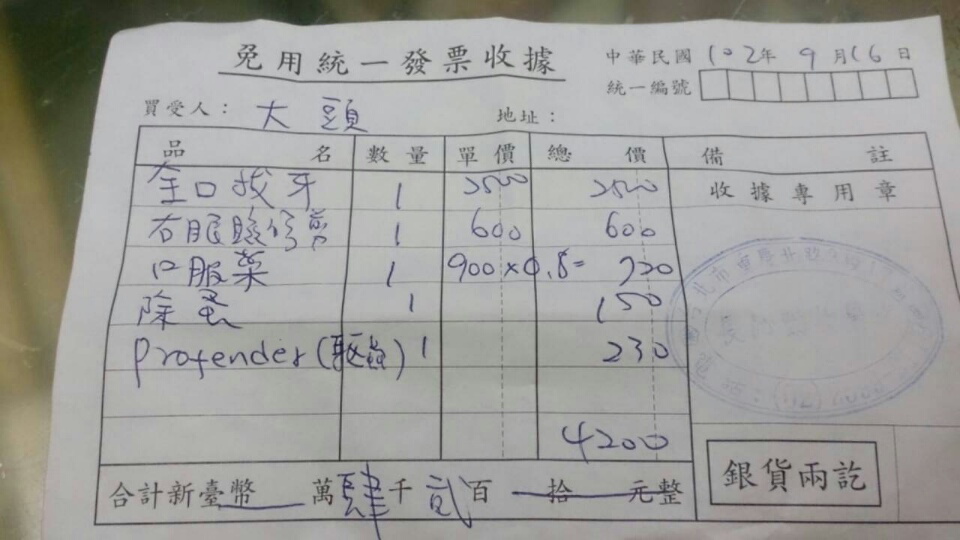 免用統一發票收據
中華民國 102年 9月16日
統一編號
買受人： 大頭 地址：
品名 數量 單價 總價 備註
全口拔牙 1 2500 2500 收據專用章
右眼瞼修剪 1 600 600
口服藥 1 900×0.8= 720
除蚤 1 150
Profender(驅蟲) 1 230
4200
合計新臺幣 萬肆千貳百 拾 元整
銀貨兩訖